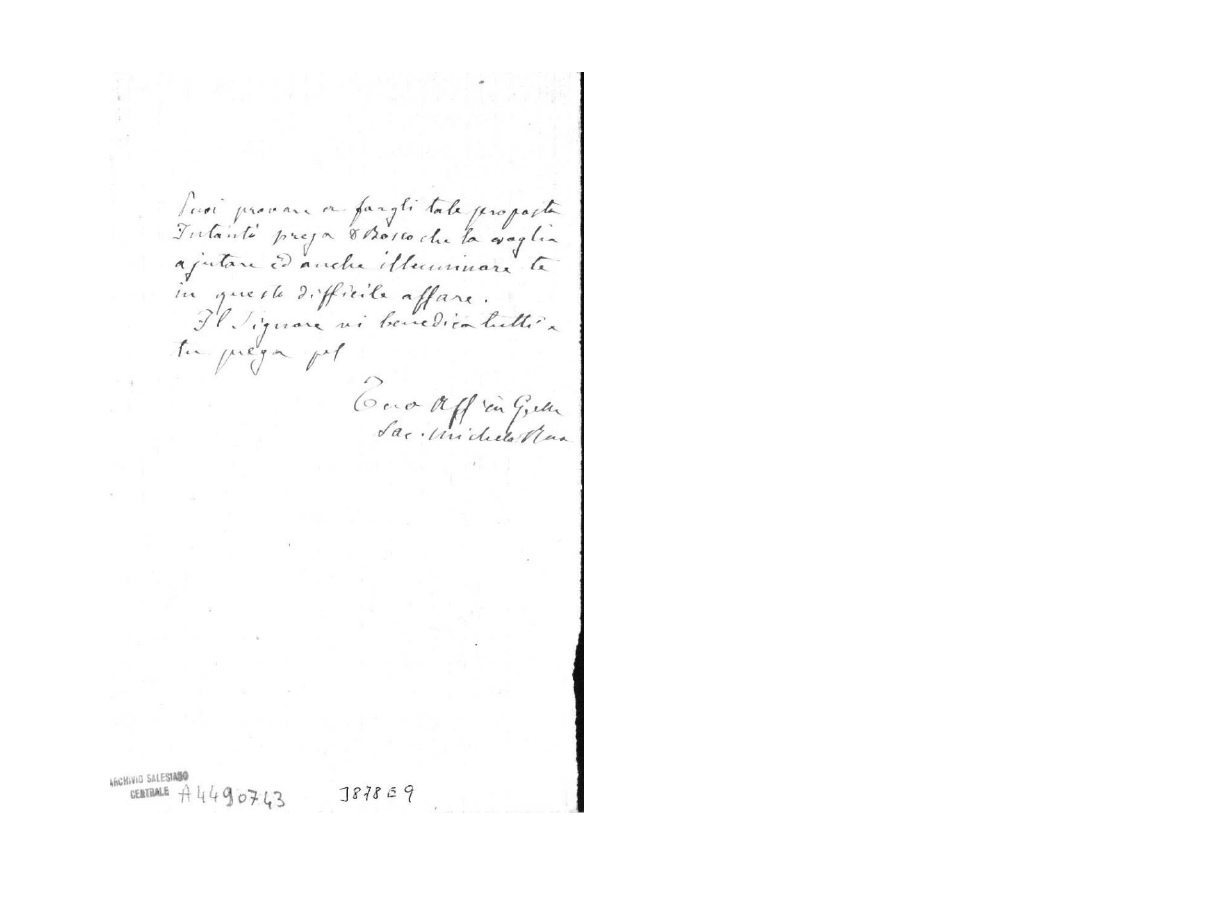 Puoi provare a fargli tale proposta
Intanto prega D Bosco che la voglia
ajutare ed anche illuminare te
in questo difficile affare.
Il Signore vi benedica tutti e
tu prega pel
Tuo Aff in G. e M.
Sac. Michele Rua
ARCHIVIO SALESIANO
CENTRALE A4490743 3878 E 9